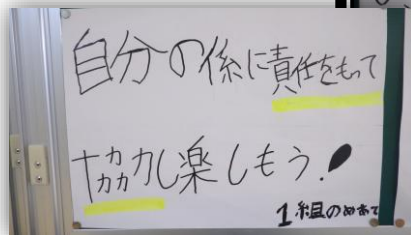 自分の係に責任をもって
協力し楽しもう!
1組のめあて